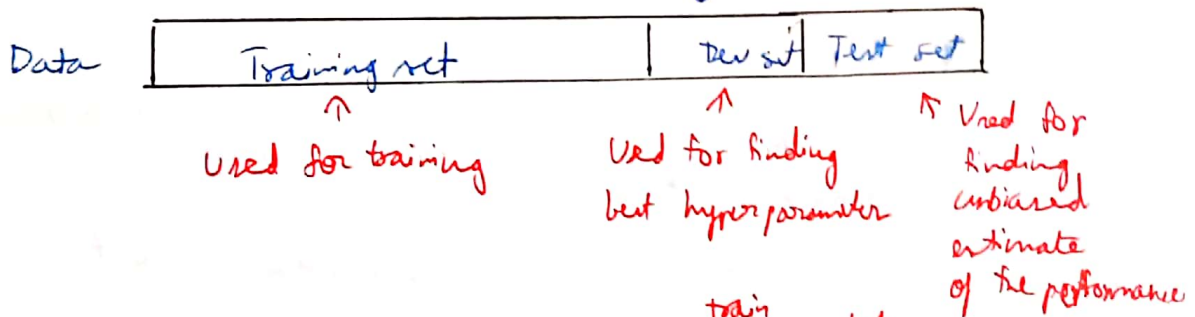 Data Training set Dev set Test set
Used for training
Used for finding
best hyperparameter
Used for
finding
unbiased
estimate
of the performance
train